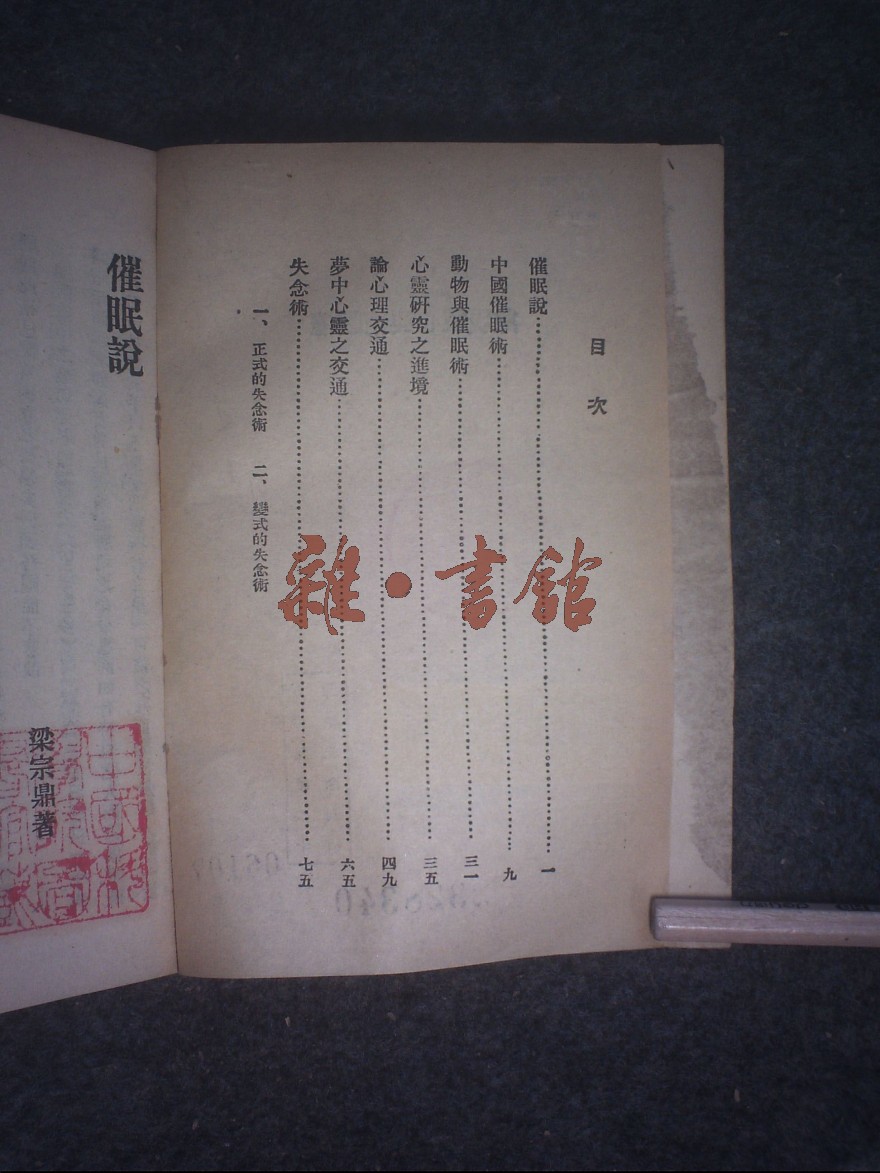 目次
催眠說…………一
中國催眠術…………九
動物與催眠術…………三一
心靈研究之進境…………三五
論心理交通…………四九
夢中心靈之交通…………六五
失念術…………七五
一、正式的失念術 二、變式的失念術
催眠說
梁宗鼎著
雜·書館